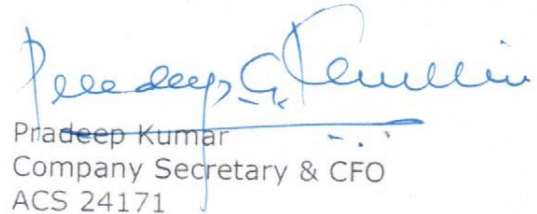 Pradeep Kumar
Company Secretary & CFO
ACS 24171